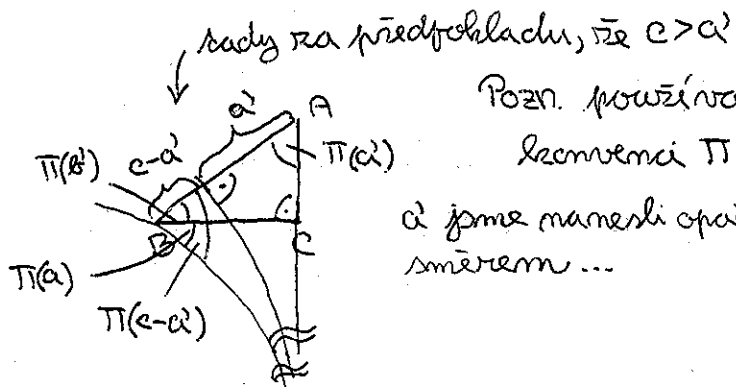 tady za předpokladu, že c > a'
Pozn. používá
konvenci Π
a' jsme nanesli opač
směrem ...
a'
A
c-a'
Π(a')
Π(b')
B
C
Π(a)
Π(c-a')